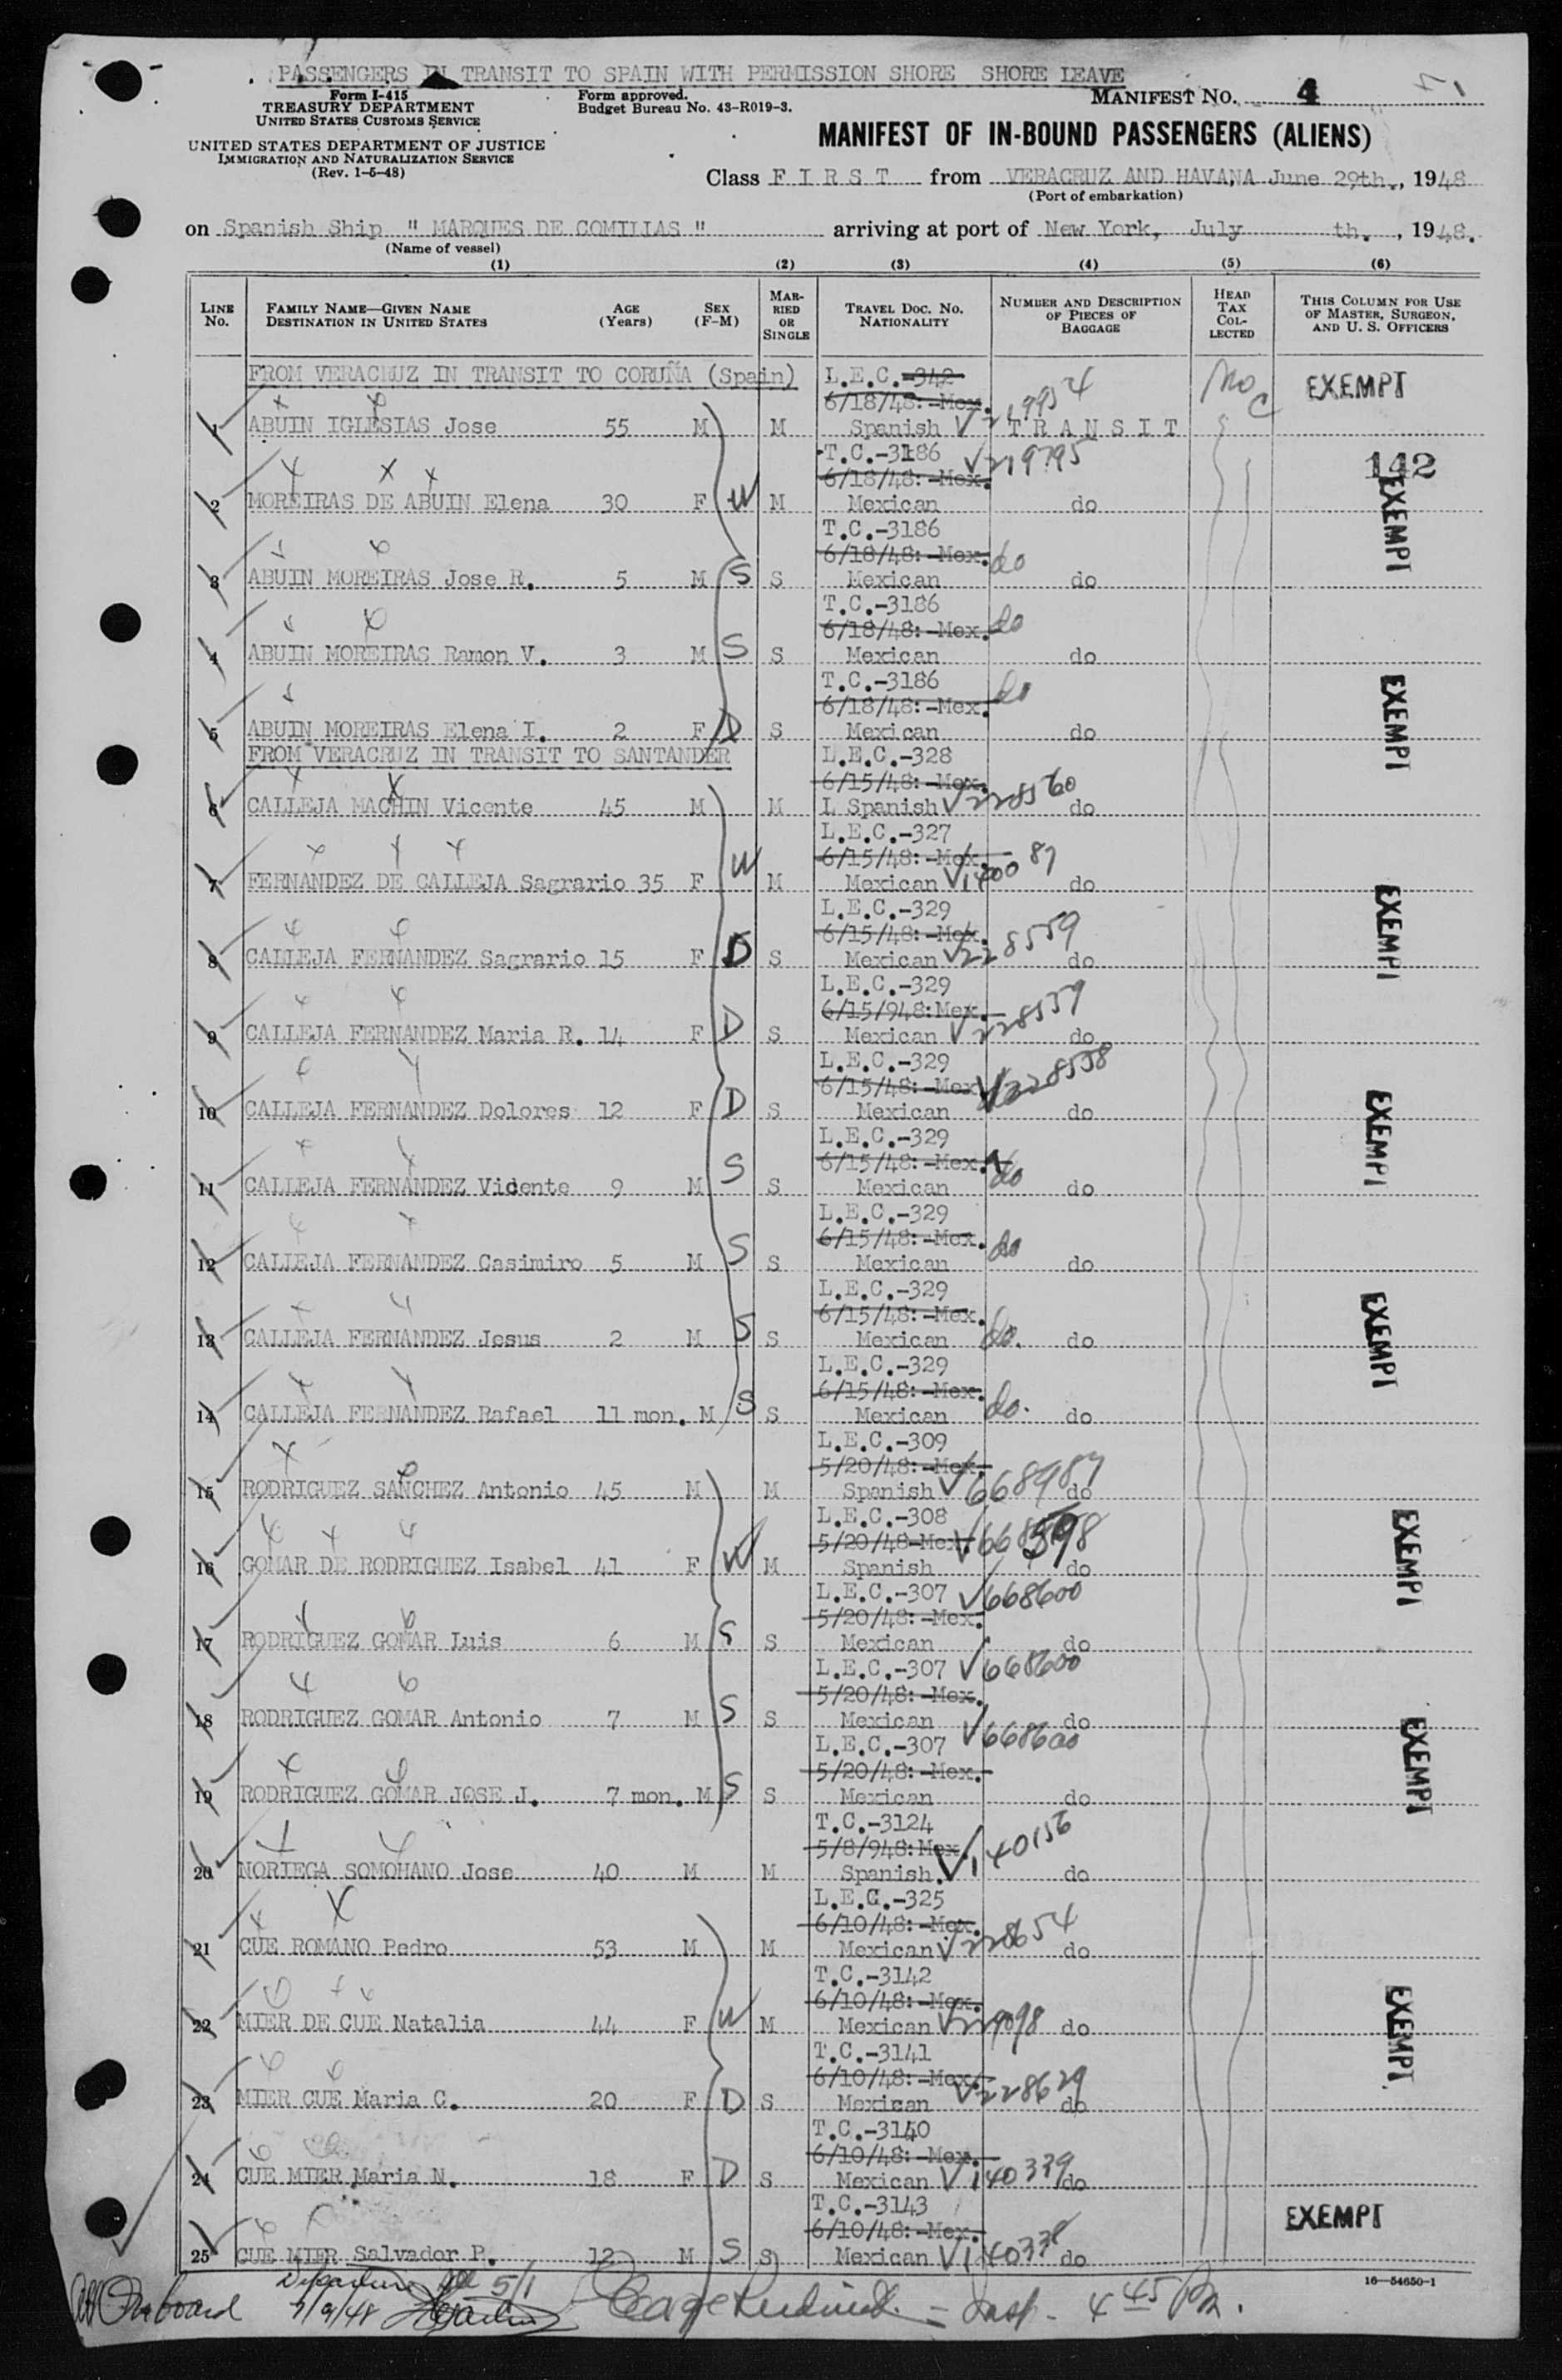 PASSENGERS IN TRANSIT TO SPAIN WITH PERMISSION SHORE SHORE LEAVE
Form I-415
TREASURY DEPARTMENT
UNITED STATES CUSTOMS SERVICE
Form approved.
Budget Bureau No. 43-R019-3.
MANIFEST NO. 4
UNITED STATES DEPARTMENT OF JUSTICE
IMMIGRATION AND NATURALIZATION SERVICE
(Rev. 1-5-48)
MANIFEST OF IN-BOUND PASSENGERS (ALIENS)
Class F I R S T from VERACRUZ AND HAVANA June 29th., 1948
(Port of embarkation)
on Spanish Ship " MARQUES DE COMILLAS " arriving at port of New York, July th., 1948.
(Name of vessel)
(1) (2) (3) (4) (5) (6)
LINE No.
FAMILY NAME—GIVEN NAME
DESTINATION IN UNITED STATES
AGE (Years)
SEX (F-M)
MARRIED OR SINGLE
TRAVEL DOC. NO. NATIONALITY
NUMBER AND DESCRIPTION OF PIECES OF BAGGAGE
HEAD TAX COLLECTED
THIS COLUMN FOR USE OF MASTER, SURGEON, AND U. S. OFFICERS
FROM VERACRUZ IN TRANSIT TO CORUÑA (Spain) L.E.C.-342 EXEMPT
6/18/48:-Mex.
1 ABUIN IGLESIAS Jose 55 M M Spanish T R A N S I T
T.C.-3186 V219795 142
6/18/48:-Mex.
2 MOREIRAS DE ABUIN Elena 30 F W M Mexican do EXEMPT
T.C.-3186
6/18/48:-Mex. do
3 ABUIN MOREIRAS Jose R. 5 M S S Mexican do
T.C.-3186
6/18/48:-Mex. do
4 ABUIN MOREIRAS Ramon V. 3 M S S Mexican do
T.C.-3186
6/18/48:-Mex. do EXEMPT
5 ABUIN MOREIRAS Elena I. 2 F D S Mexican do
FROM VERACRUZ IN TRANSIT TO SANTANDER L.E.C.-328
6/15/48:-Mex.
6 CALLEJA MACHIN Vicente 45 M M L Spanish V228560 do
L.E.C.-327
6/15/48:-Mex.
7 FERNANDEZ DE CALLEJA Sagrario 35 F W M Mexican V140087 do
L.E.C.-329 EXEMPT
6/15/48:-Mex.
8 CALLEJA FERNANDEZ Sagrario 15 F D S Mexican V228559 do
L.E.C.-329
6/15/948:Mex.
9 CALLEJA FERNANDEZ Maria R. 14 F D S Mexican V228559 do
L.E.C.-329
6/15/48:-Mex V228558
10 CALLEJA FERNANDEZ Dolores 12 F D S Mexican do EXEMPT
L.E.C.-329
6/15/48:-Mex. do
11 CALLEJA FERNANDEZ Vidente 9 M S S Mexican do
L.E.C.-329
6/15/48:-Mex. do
12 CALLEJA FERNANDEZ Casimiro 5 M S S Mexican do
L.E.C.-329
6/15/48:-Mex.
13 CALLEJA FERNANDEZ Jesus 2 M S S Mexican do. do EXEMPT
L.E.C.-329
6/15/48:-Mex.
14 CALLEJA FERNANDEZ Rafael 11 mon. M S S Mexican do. do
L.E.C.-309
5/20/48:-Mex.
15 RODRIGUEZ SANCHEZ Antonio 45 M M Spanish do
L.E.C.-308
5/20/48-Mex
16 GOMAR DE RODRIGUEZ Isabel 41 F W M Spanish do EXEMPT
L.E.C.-307 V668600
5/20/48:-Mex.
17 RODRIGUEZ GOMAR Luis 6 M S S Mexican do
L.E.C.-307 V668600
5/20/48:-Mex.
18 RODRIGUEZ GOMAR Antonio 7 M S S Mexican do
L.E.C.-307 V668600 EXEMPT
5/20/48:-Mex.
19 RODRIGUEZ GOMAR JOSE J. 7 mon. M S S Mexican do
T.C.-3124
5/8/948:Mex
20 NORIEGA SOMOHANO Jose 40 M M Spanish. V140156 do
L.E.C.-325
6/10/48:-Mex.
21 CUE ROMANO Pedro 53 M M Mexican V228654 do
T.C.-3142
6/10/48:-Mex.
22 MIER DE CUE Natalia 44 F W M Mexican do EXEMPT
T.C.-3141
6/10/48:-Mex.
23 MIER CUE Maria C. 20 F D S Mexican V228629 do
T.C.-3140
6/10/48:-Mex.
24 CUE MIER Maria N. 18 F D S Mexican V140339 do
T.C.-3143 EXEMPT
6/10/48:-Mex.
25 CUE MIER Salvador P. 12 M S S Mexican V140338 do
16—54650-1
All Onboard 7/9/48 5/1 Insp. 4 45 Pm.